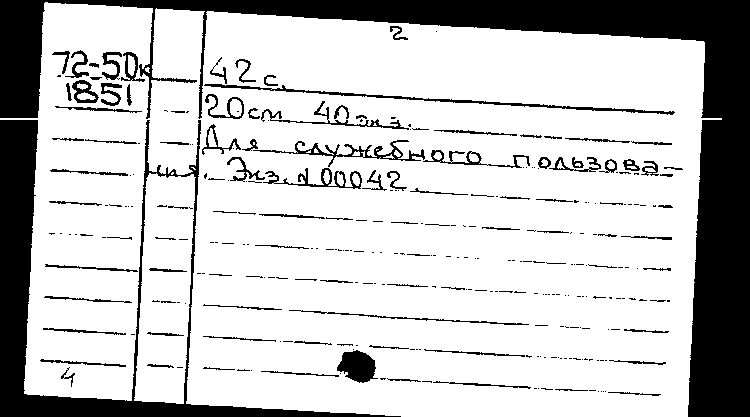 2
72-50к
1851
42 с.
20см 40экз.
Для служебного пользова-
ния. Экз. №00042.
4